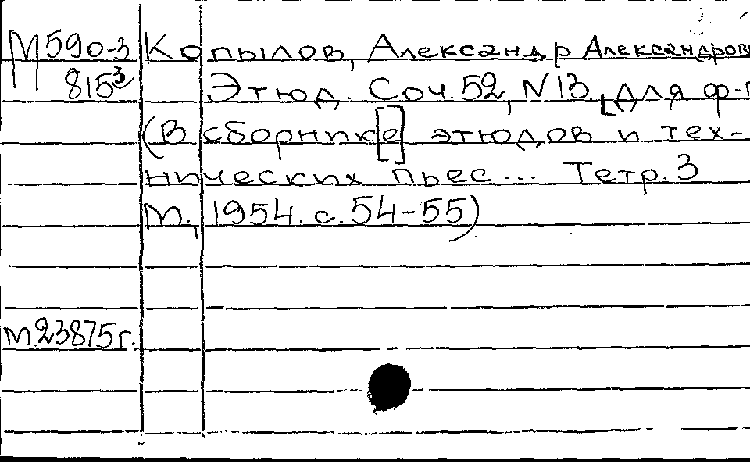 М590-3 Копылов, Александр Александрови
815³ Этюд. Соч. 52, N13 [для ф-п
(В сборник[е] этюдов и тех-
нических пьес... Тетр. 3
М., 1954. с. 54-55)
М.23875г.